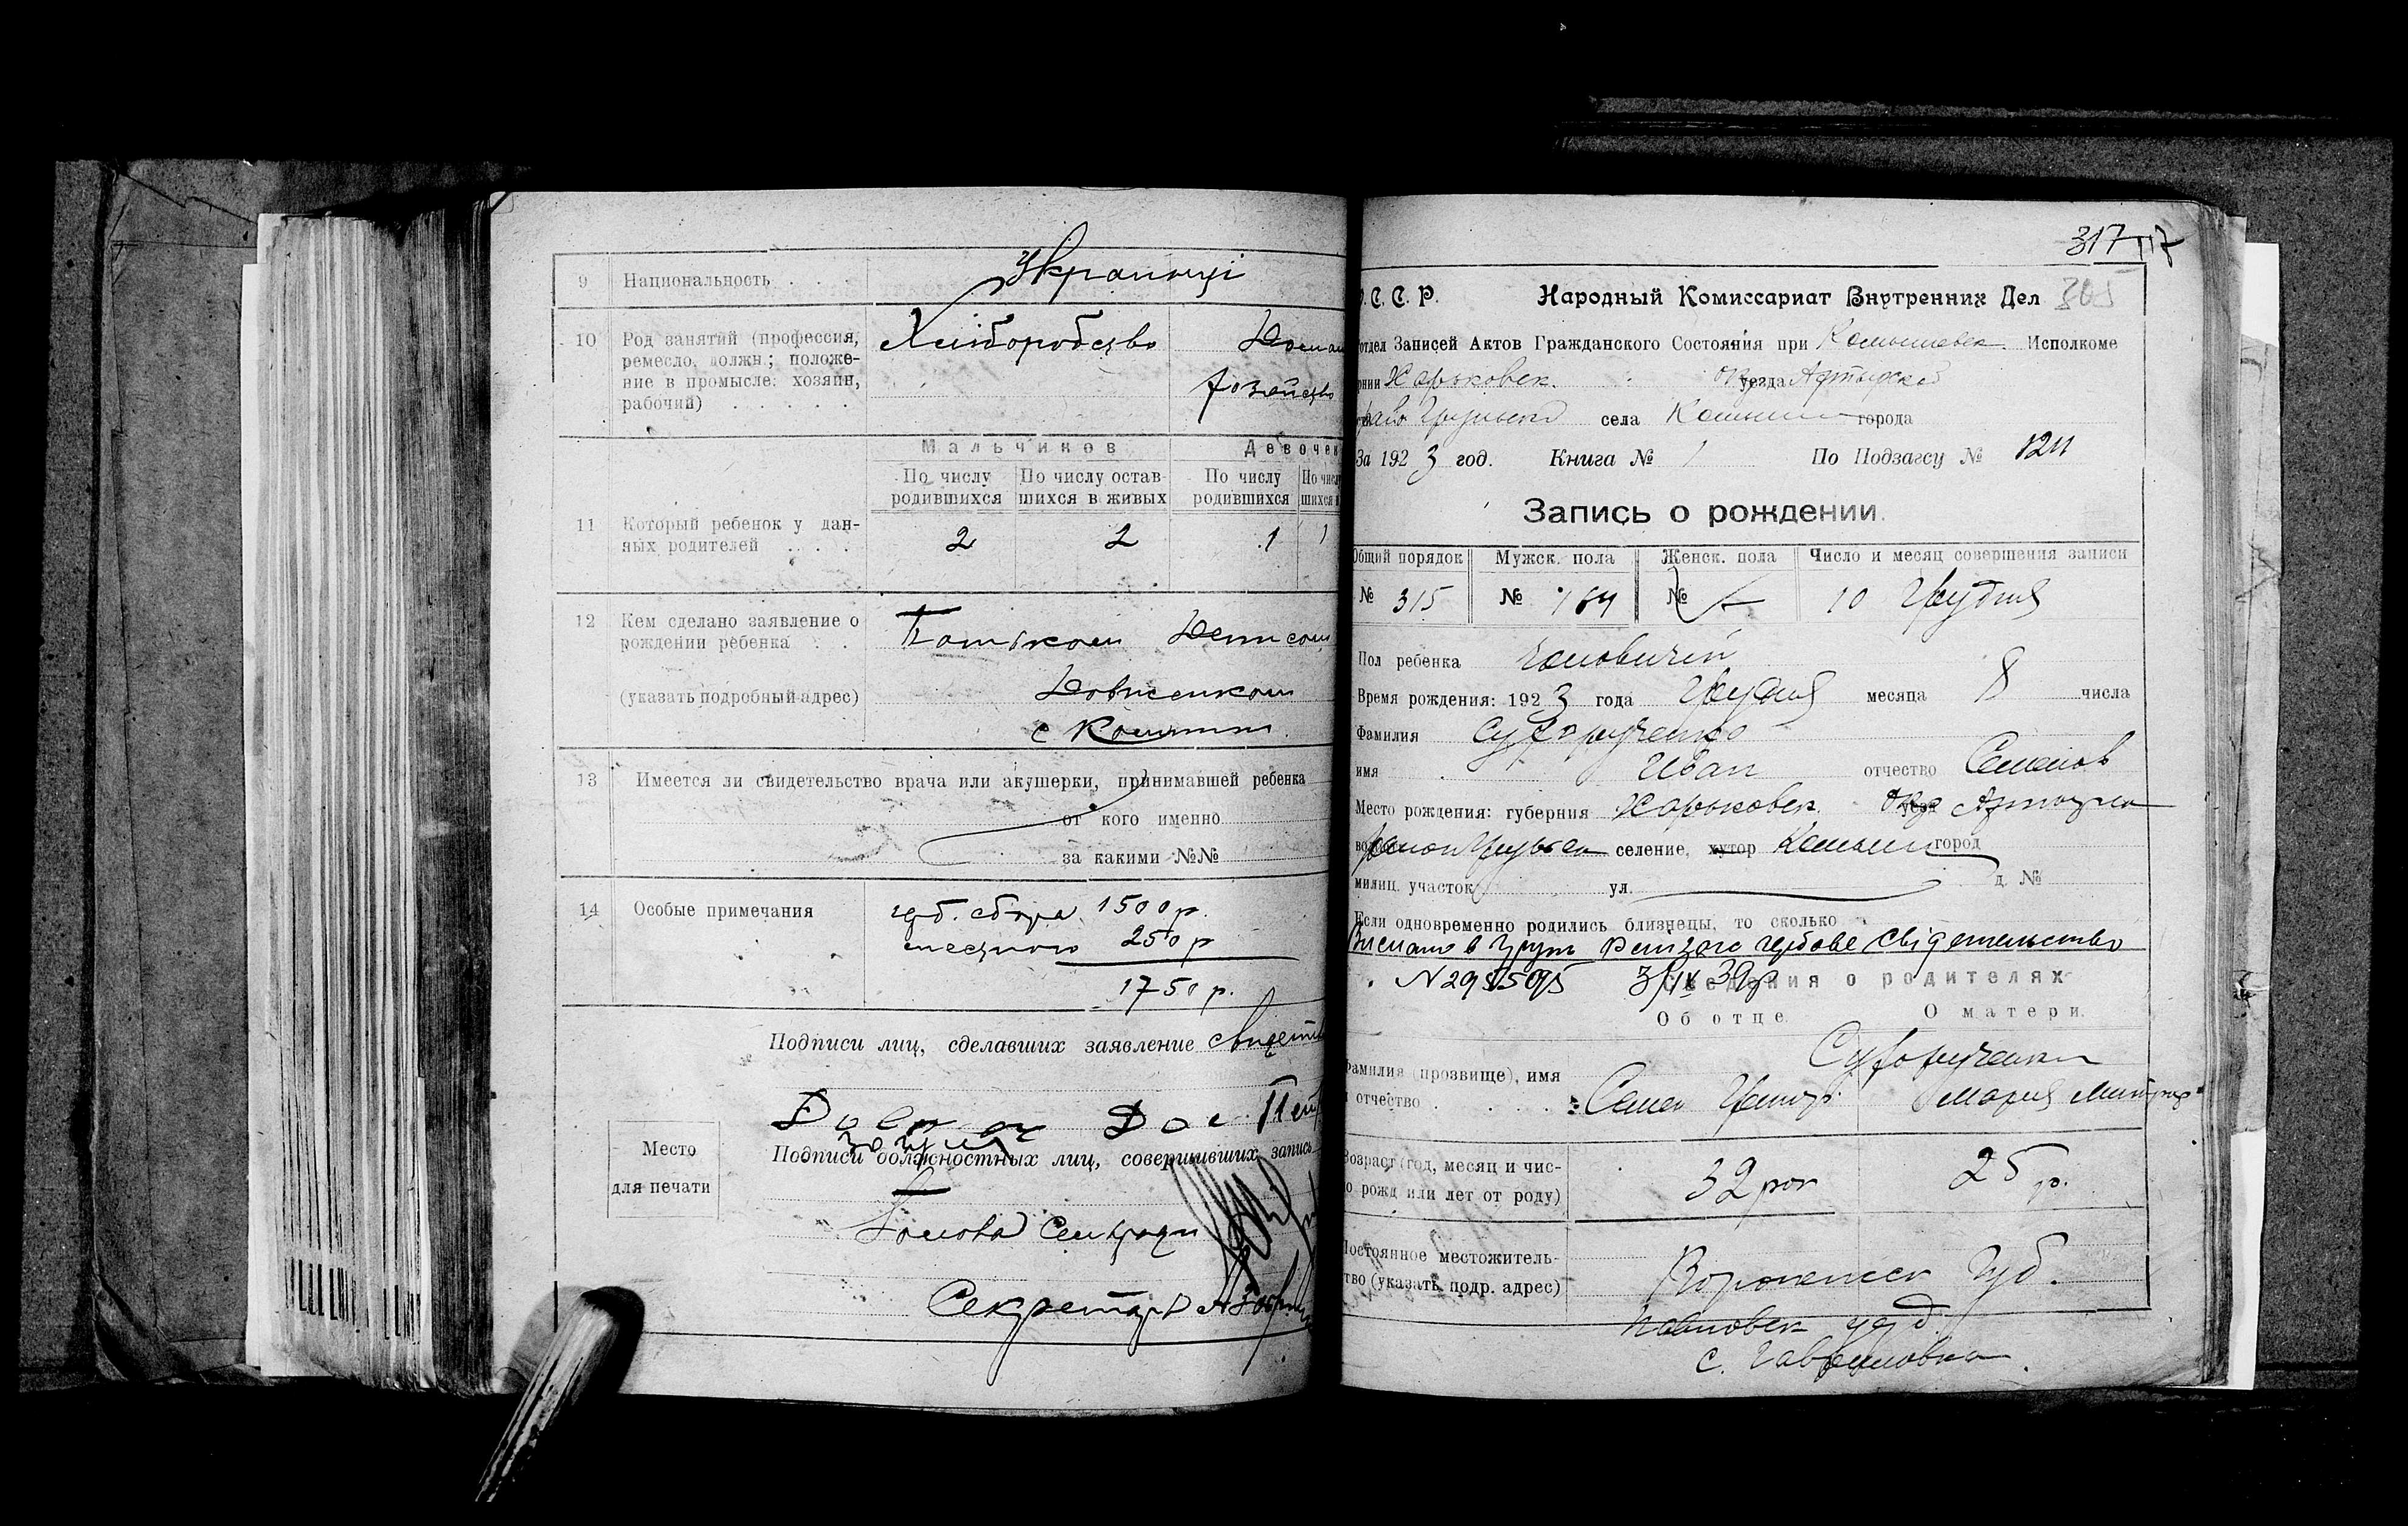 9 Национальность . . . Українці
10 Род занятий (профессия, ремесло, должн.; положение в промысле: хозяин, рабочий) . . . . . . Хліборобство
Мальчиков Девочек
По числу родившихся По числу оставшихся в живых По числу родившихся
11 Который ребенок у данных родителей . . . . 2 2 1 1
12 Кем сделано заявление о рождении ребенка . . Батьком Денисом
(указать подробный адрес) Довженком
с Комыши
13 Имеется ли свидетельство врача или акушерки, принимавшей ребенка
от кого именно
за какими №№
14 Особые примечания герб. сбора 1500 р.
местного 250 р
1750 р.
Подписи лиц, сделавших заявление
Место для печати
Подписи должностных лиц, совершивших запись
Голова
Секретарь
317
305
С. С. Р. Народный Комиссариат Внутренних Дел
отдел Записей Актов Гражданского Состояния при Комышевск. Исполкоме
Харьковск. окр уезда
села Комыши города
За 1923 год. Книга № 1 По Подзагсу №
Запись о рождении.
Общий порядок Мужск. пола Женск. пола Число и месяц совершения записи
№ 315 № 164 № 10 Грудня
Пол ребенка чоловичій
Время рождения: 1923 года Грудня месяца 8 числа
Фамилия Сухорученко
имя Иван отчество Семенов
Место рождения: губерния Харьковск. окр
район селение, хутор Комыши город
милиц. участок ул. д. №
Если одновременно родились близнецы, то сколько
Висіано в свідетельство
N 3/IX 39р
Сведения о родителях
Об отце. О матери.
Сухорученки
Фамилия (прозвище), имя
и отчество . . . . . Семен Григор. Мария
Возраст (год, месяц и число рожд или лет от роду) 32 рок 25 р.
Постоянное местожительство (указать подр. адрес) Воронежск Губ.
Павловск уезд
с. Гавриловка